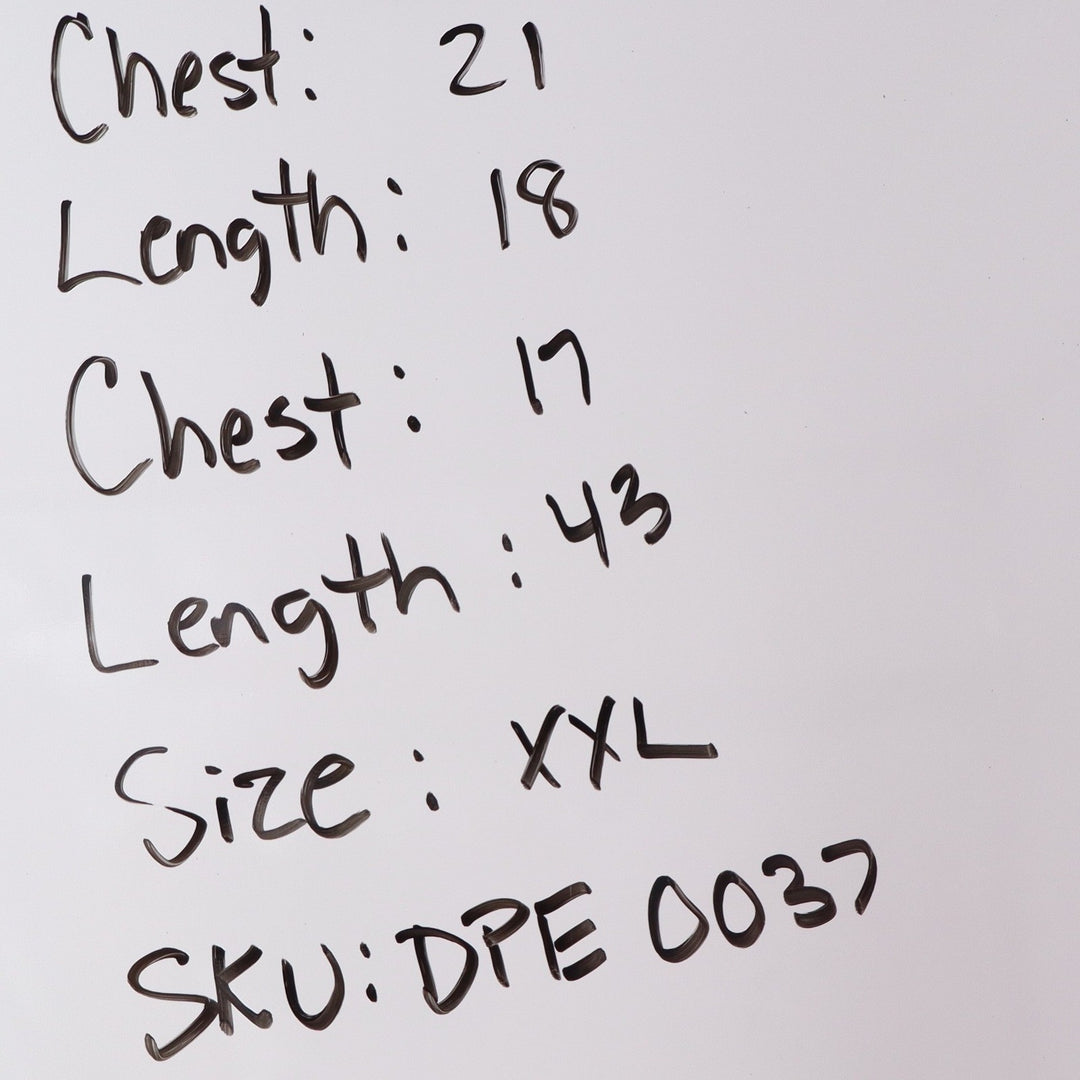 Chest: 21
Length: 18
Chest: 17
Length: 43
Size: XXL
SKU: DPE 0037